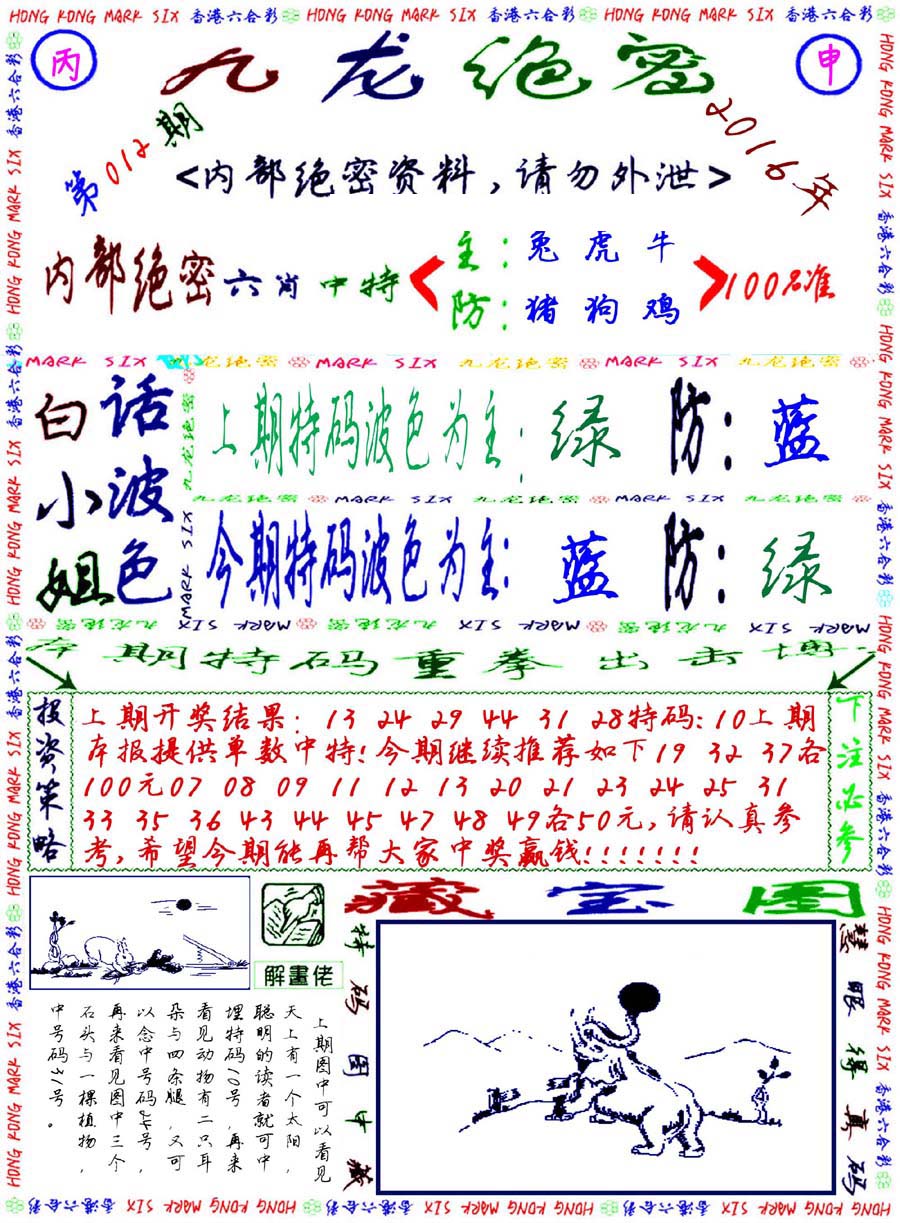 HONG KONG MARK SIX 香港六合彩 HONG KONG MARK SIX 香港六合彩 HONG KONG MARK SIX 香港六合彩
丙 九龙绝密 申
第012期 2016年
<内部绝密资料,请勿外泄>
内部绝密六肖中特
主:兔虎牛
防:猪狗鸡
100%准
MARK SIX 九龙绝密 MARK SIX 九龙绝密 MARK SIX 九龙绝密
白话
小波
姐色
上期特码波色为主:绿 防:蓝
九龙绝密 MARK SIX 九龙绝密 MARK SIX 九龙绝密
今期特码波色为主:蓝 防:绿
九龙绝密 MARK SIX 九龙绝密 MARK SIX 九龙绝密 MARK SIX
本期特码重拳出击博
投资策略
上期开奖结果:13 24 29 44 31 28特码:10上期
本报提供单数中特!今期继续推荐如下19 32 37各
100元07 08 09 11 12 13 20 21 23 24 25 31
33 35 36 43 44 45 47 48 49各50元,请认真参
考,希望今期能再帮大家中奖赢钱!!!!!!!
下注必参
藏宝图
解畫佬
上期图中可以看见
天上有一个太阳,
聪明的读者就可中
埋特码10号,再来
看见动物有二只耳
朵与四条腿,又可
以念中号码44号,
再来看见图中三个
石头与一棵植物,
中号码31号。
特码图中藏
慧眼得真码
HONG KONG MARK SIX 香港六合彩 HONG KONG MARK SIX 香港六合彩 HONG KONG MARK SIX 香港六合彩